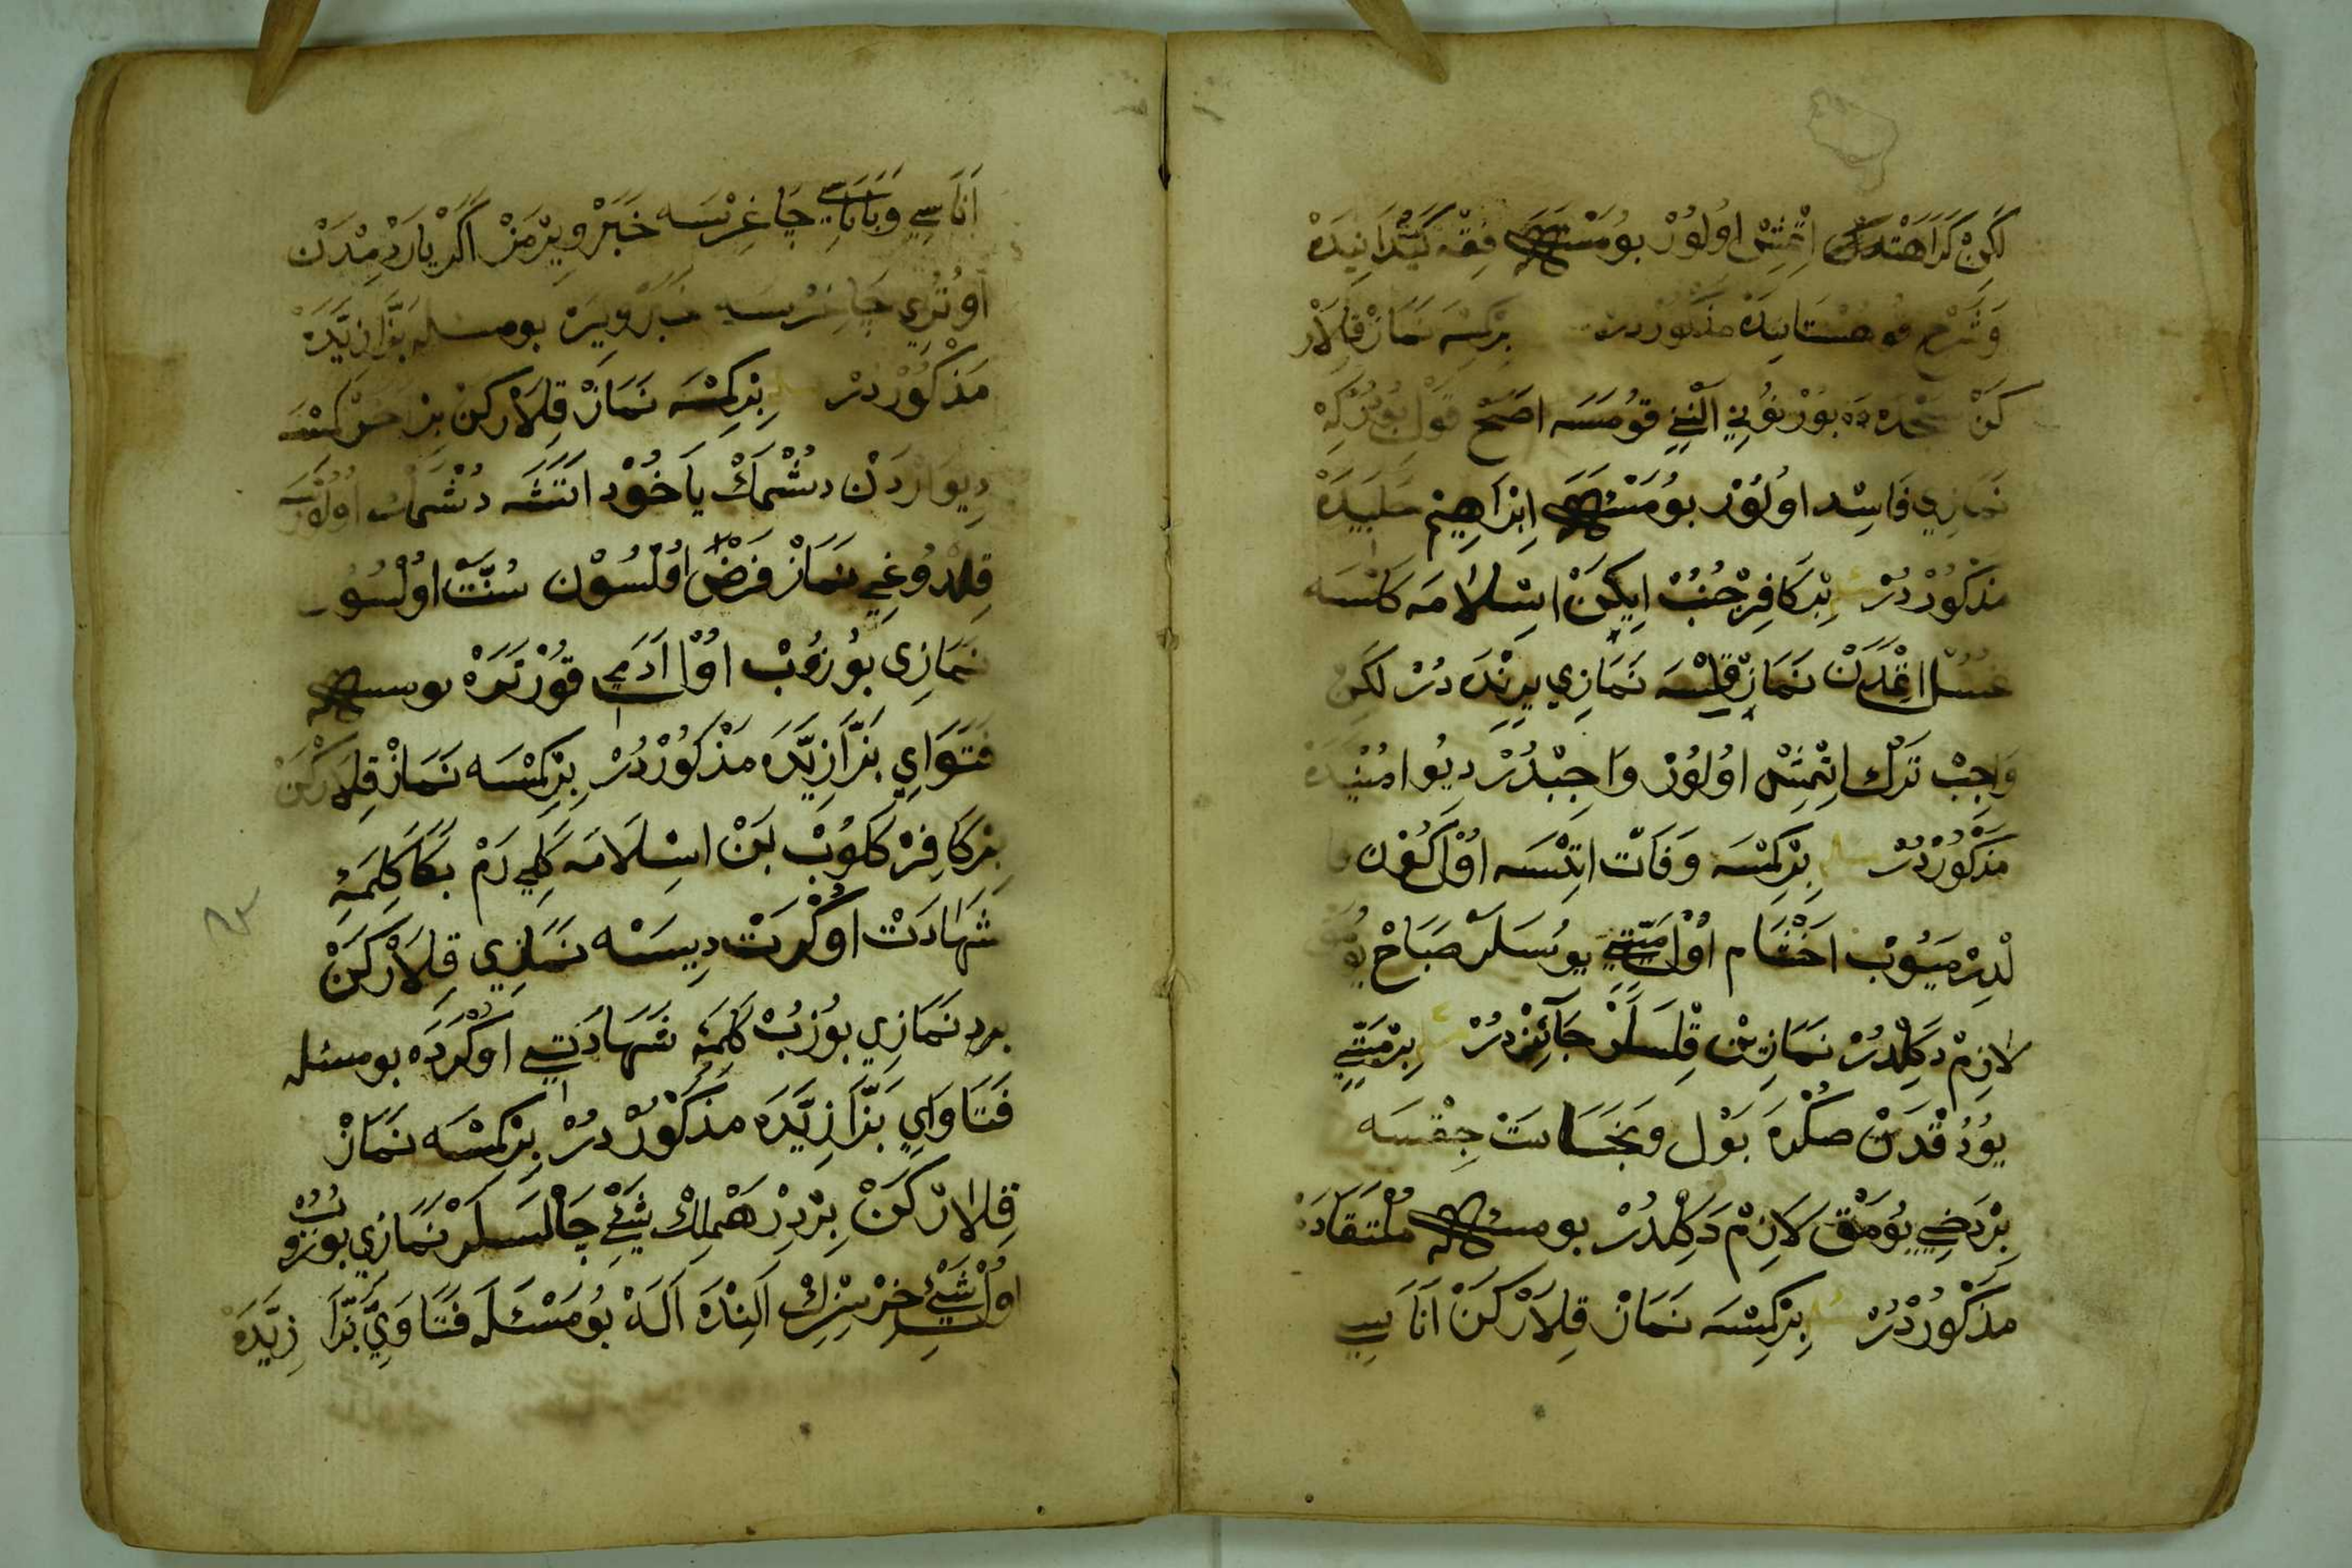 لَكِنْ كَرَاهَتْلَه اِتْمِشْ اوُلوُرْ بوُمَسْئَلَه فِقْهِ كَيْدَانِيدَه
وَشَرْحِ قوُهِسْتَانِيدَه مَذْكوُرْدُرْ بِرْكِسَه نَمَازْ قِلَارْ
كَنْ سَجْدَه دَه بوُرْنوُنِي اَلْنِنِي قوُمَسَه اصَحْ قَوْل بوُدُرْكِه
نَمَازِي فَاسِد اوُلوُرْ بوُمَسْئَلَه اِبْرَاهِيم حَلَبِيدَه
مَذْكوُرْدُرْ بِرْكَافِرْ جُنُبْ اِيكَنْ اِسْلَامَه كَلْسَه
غُسُل اِتْمَدَنْ نَمَازْ قِلْسَه نَمَازِي يِرِنْدَه دُرْ لَكِنْ
وَاجِبْ تَرْك اِتْمِشْ اوُلوُرْ وَاجِبْدُرْ دِيوُ امُنْيَدَه
مَذْكوُرْدُرْ بِرْكِمْسَه وَفَاتْ اِتْسَه اوُل كوُن
لْدِرْمَيوُبْ اَخْشَام اوُل مَيِّتِي يوُسَلَرْ صَبَاحْ
لَازِمْ دَكِلْدُرْ نَمَازِنْ قِلْسَلَرْ جَائِزْدُرْ بِرْمَيِّتِي
يوُدُقْدَنْ صُكْرَه بَوْل وَنَجَاسَتْ چِقْسَه
بِرْدَخِي يوُمَقْ لَازِمْ دَكِلْدُرْ بومسئله مُلْتَقَادَه
مَذْكوُرْدُرْ بِرْكِسَه نَمَازْ قِلَارْكَنْ اَنَاسِي
اَنَاسِي وَبَابَاسِي چَاغِرْسَه خَبَرْ وِيرْمَزْ اَكَرْ يَارْدِمْدَنْ
اوُتُرِي چَاغِرْسَه خَبَرْ وِيرَه بومسئله بَزَّازِيَّدَه
مَذْكوُرْدُرْ بِرْكِمْسَه نَمَازْ قِلَارْكَنْ بِرْ اَخَرْ كِمْسَه
دِيوَارْدَنْ دُشْمَكْ يَاخوُدْ اَتَشَه دُشْمَكْ اوُلوُرْسَه
قِلْدوُغِي نَمَازْ فَرْضْ اوُلْسوُن سُنَّتْ اوُلْسوُن
نَمَازِي بوُزوُبْ اوُل اَدَمِي قوُرْتَرَه بومسئله
فَتَوَايِ بَزَّازِيَّدَه مَذْكوُرْدُرْ بِرْكِمْسَه نَمَازْ قِلَارْكَنْ
بِرْكَافِرْ كَلوُبْ بَنْ اِسْلَامَه كَلِي رَمْ بَكَا كَلِمَۀِ
شَهَادَتْ اوُكْرَتْ دِيسَه نَمَازِي قِلَارْكَنْ
بردِ نَمَازِي بوُزُبْ كَلِمَۀِ شَهَادَتِي اوُكْرَدَه بومسئله
فَتَاوَايِ بَزَّازِيَّدَه مَذْكوُرْدُرْ بِرْكِمْسَه نَمَازْ
قِلَارْكَنْ بِرْدِرْهَمْلِكْ شَيْئِ چَالْسَلَرْ نَمَازِي بوُزوُبْ
اوُل شَيْئِ خِرْسِزِكْ اَلِنْدَه اَلَه بوُمَسْئَلَه فَتَاوَيِ بَزَّا زِيَّدَه